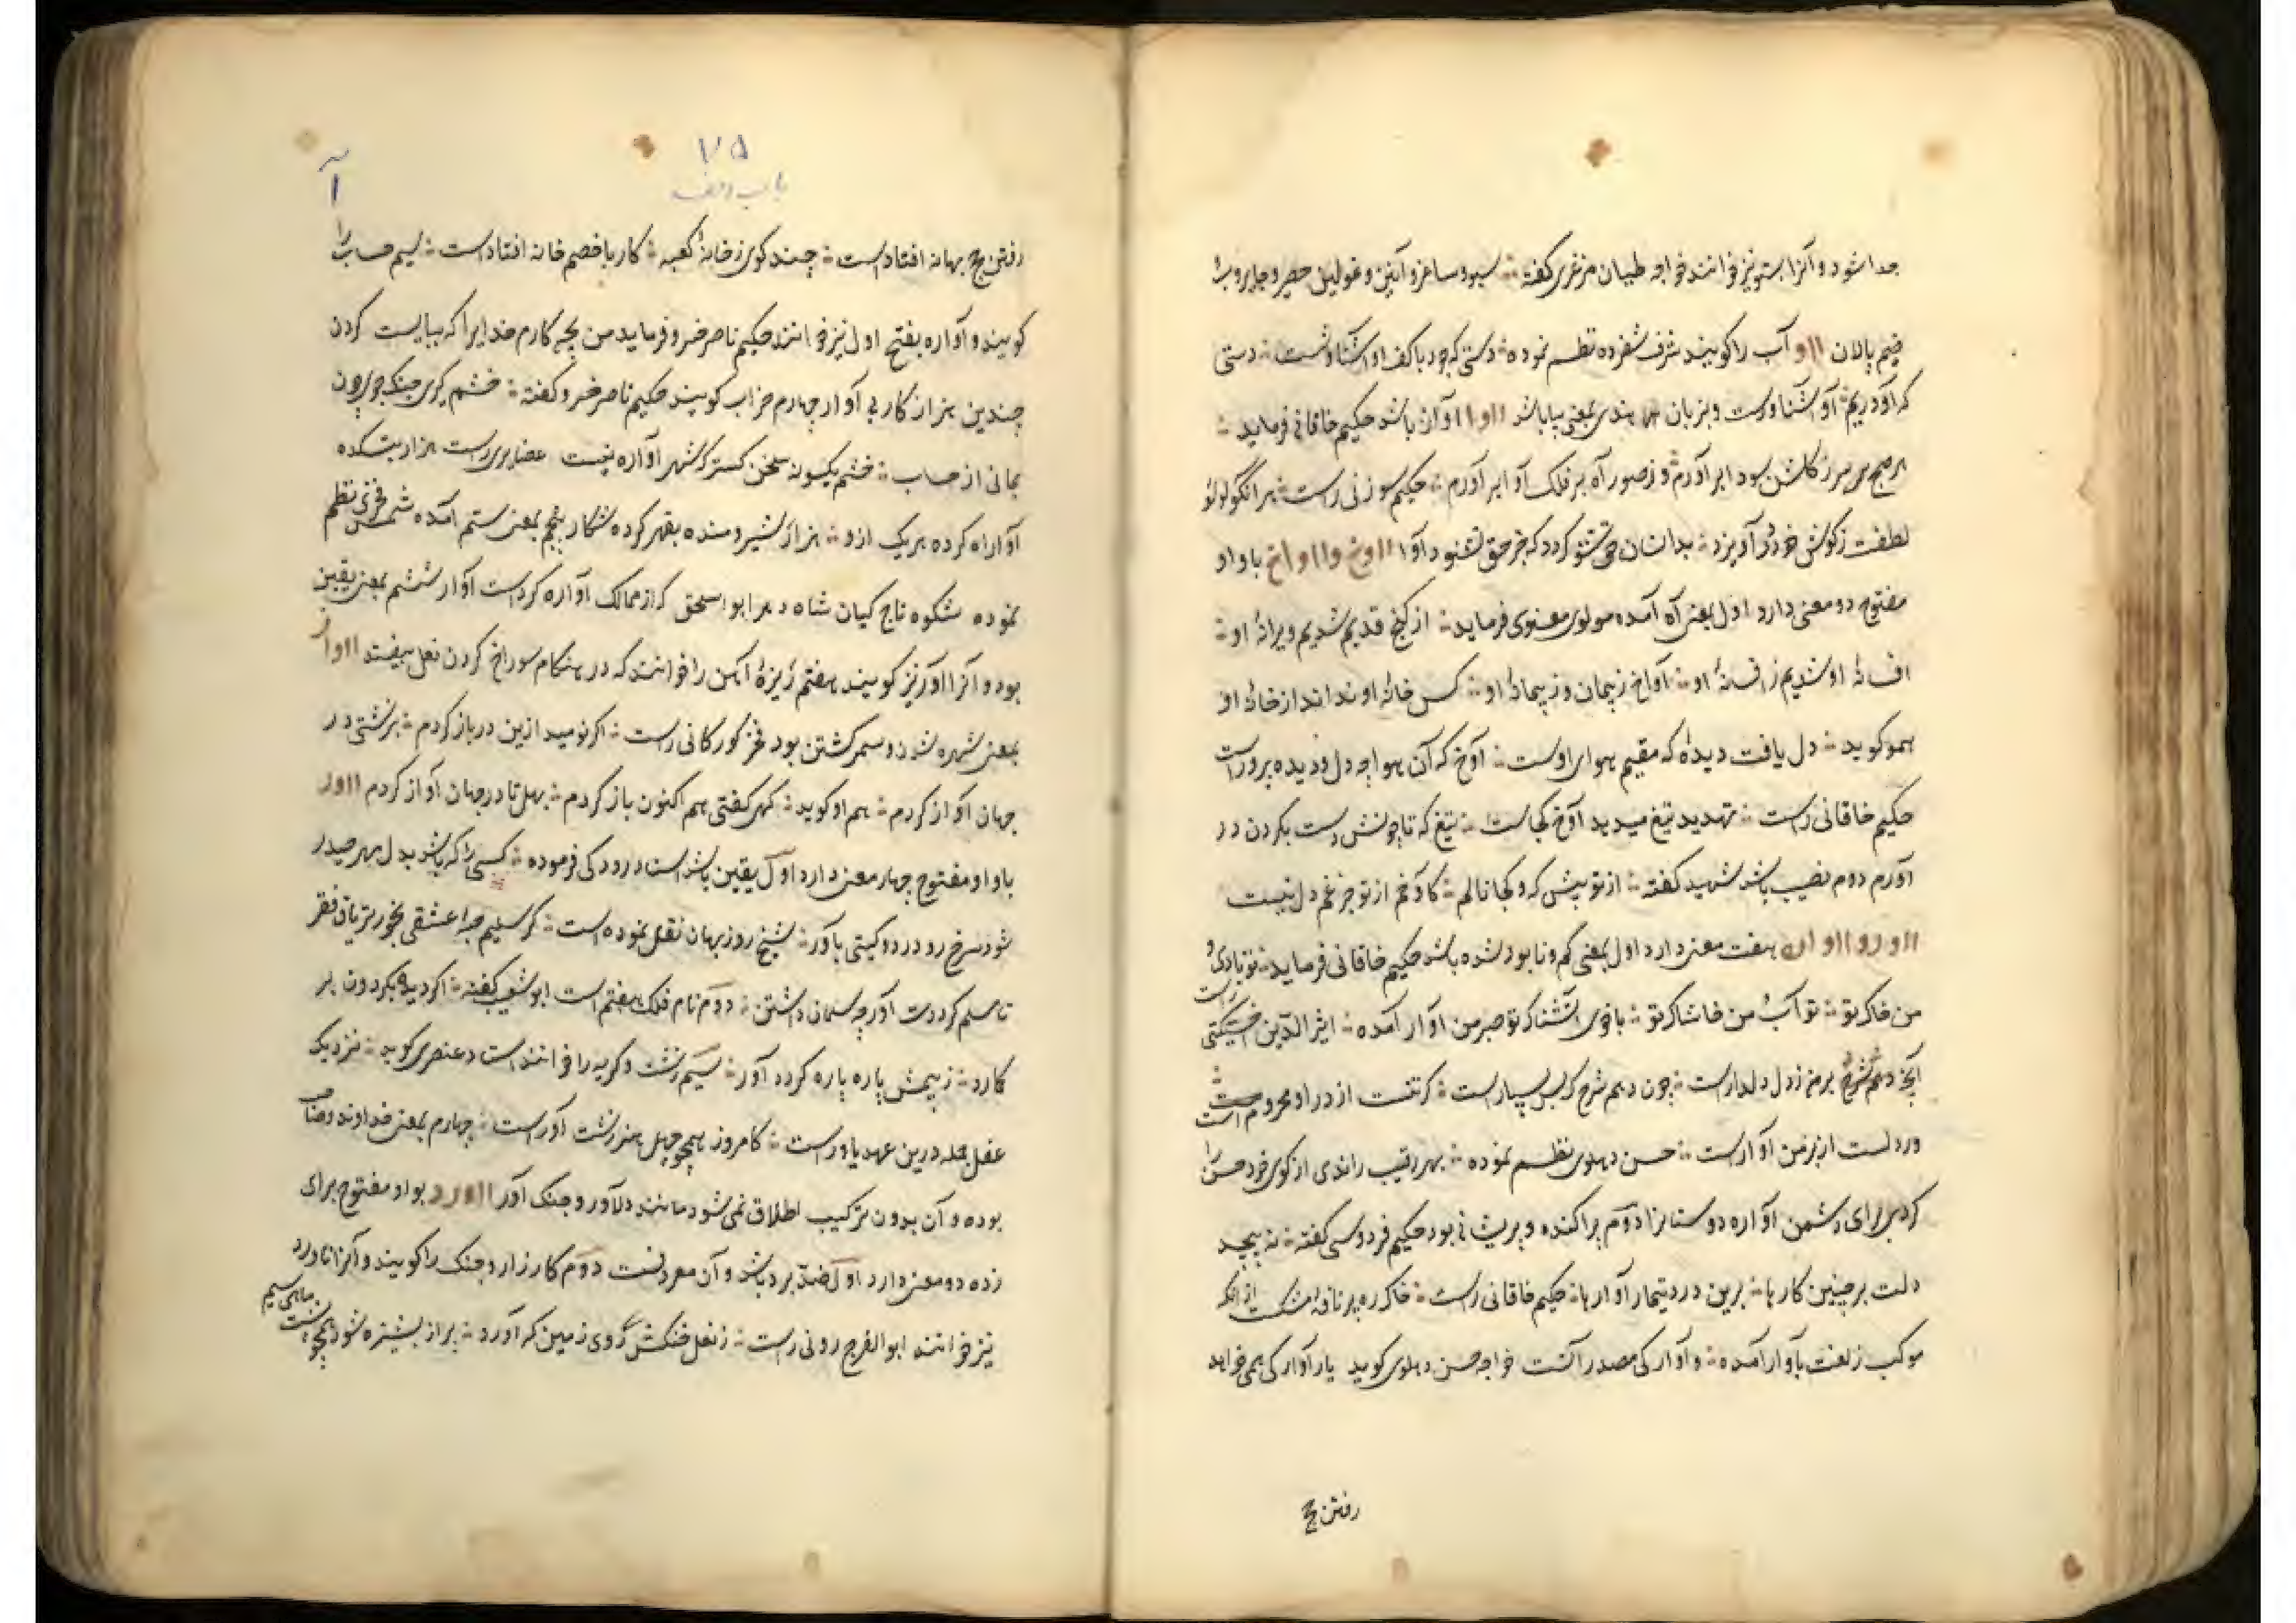 جدا شود و آنرا بستو نیز خوانند خواجه طیان مرغزی گفته سبو و ساغر و آنین و غولین حصیر و جایروب
خیم پالان ااو آب را گویند شرف شفروه نظم نموده دستی که جود با کف او آشناوشست دستی
که آو دریم آو آشناورست و بزبان هندی بمعنی بیا باشد ااوا اوان باشد حکیم خاقانی فرماید
هر صبح سر ز گلشن سودا برآورم وز صور آه بر فلک آوا برآورم حکیم سوزنی راست هرانگو لولو
لطفت زگوش خود در آویزد بدانسان حق شنو گردد که جز حق نشنود آوا ااوخ وااواخ با واو
مفتوح دو معنی دارد اول بمعنی آه آمده مولوی معنوی فرماید از گنج قدیم شدیم ویرانهٔ او
افسانهٔ او شدیم ز افسانهٔ او آواخ ز پیمان و ز پیمانهٔ او کس خانهٔ او نداند از خانهٔ او
همو گوید دل یافت دیده که مقیم هوای اوست آوخ که آن هوا چه دل و دیده پرورست
حکیم خاقانی راست تهدید تیغ میدید آوخ کجاست تیغ که تا چونش دست بگردن در
آورم دوم نصیب باشد شهید گفته از تو پیش که و کجا نالم کاوخم از تو جز غم دل نیست
ااورو ااواره هفت معنی دارد اول بمعنی گم و نابود شده باشد حکیم خاقانی فرماید تو بادی و
من خاک تو تو آب من خاشاک تو با خوی آتشناک تو صبر من آوار آمده اثیر الدین اخسیکتی راست
آنچه دهم شرح بر من ز دل دلدارست چون دهم شرح که بس بسیارست گر تنت از در او محرومست
ور دلست از بر من آوارست حسن دهلوی نظم نموده بهر رقیب راندی از کوی خود حسن را
کردی برای دشمن آواره دوستانرا دوم پراکنده و پریشانی بود حکیم فردوسی گفته نه پیچد
دلت بر چنین کارها برین درد و تیمار آوارها حکیم خاقانی راست خاک ره پر نافهٔ مشکست از آنکه
موکب زلفت بآوار آمده و آوارکی مصدر آنست خواجه حسن دهلوی گوید یار آوارکی همی خواهد
رفتن حج
۷۵
باب الف
آ
رفتن حج بهانه افتادست چند گوی ز خانهٔ کعبه کار با خصم خانه افتادست سیم حساب را
گویند و آواره بفتح اول نیز خوانند حکیم ناصر خسرو فرماید من بچه کارم خدایرا که ببایست کردن
چندین هزار کار بی آوار چهارم خراب گویند حکیم ناصر خسرو گفته خشم یکی جنگ جوی چون
بمانی از حساب خشم یکسو نه سخن گستر که شهر آواره نیست عضایری راست هزار بتکده
آواره کرده هر یک ازو هزار شیر و منده بقهر کرده شکار پنجم بمعنی ستم آمده شمس فخری نظم
نموده شکوه تاج کیان شاه دهر ابو اسحق که از ممالک آواره کردست آوار ششم بمعنی یقین
بود و آنرا آور نیز گویند هفتم ریزهٔ آهن را خوانند که در هنگام سوراخ کردن نعل بیفتد ااواز
بمعنی شهره شدن و سمر گشتن بود فخر گورگانی راست اگر نومید ازین در باز گردم بزشتی در
جهان آواز گردم هم او گوید گهی گفتی هم اکنون باز گردم بهل تا در جهان آواز گردم ااور
با واو مفتوح چهار معنی دارد اول یقین باشد استاد رودکی فرموده کسی را که باشد بدل مهر حیدر
شود سرخ رو در دو گیتی بآور شیخ روزبهان نقل نموده است گر سلیم مجه عشقی بخور تریاق فقر
تا مسلم گرددت آور چه سلمان داشتن دوم نام فلک هفتم است ابو شعیب گفته اگر دیده بگردون بر
گمارد ز بیمش پاره پاره گردد آور سیم زشت و کریه را خوانند استاد عنصری گوید نزدیک
عقل جمله درین عهد یاورست کامروز همچو جهل هنر زشت آورست چهارم بمعنی خداوند و صاحب
بوده و آن بدون ترکیب اطلاق نمی شود مانند دلاور و جنگ آور ااورد بواو مفتوح برای
زده دو معنی دارد اول ضد برد باشد و آن معروفست دوم کارزار و جنگ را گویند و آنرا ناورد
نیز خوانند ابو الفرج رونی راست ز نعل خنگش روی زمین که آورد پر از بشیزه شود همچو پشت ماهی سیم